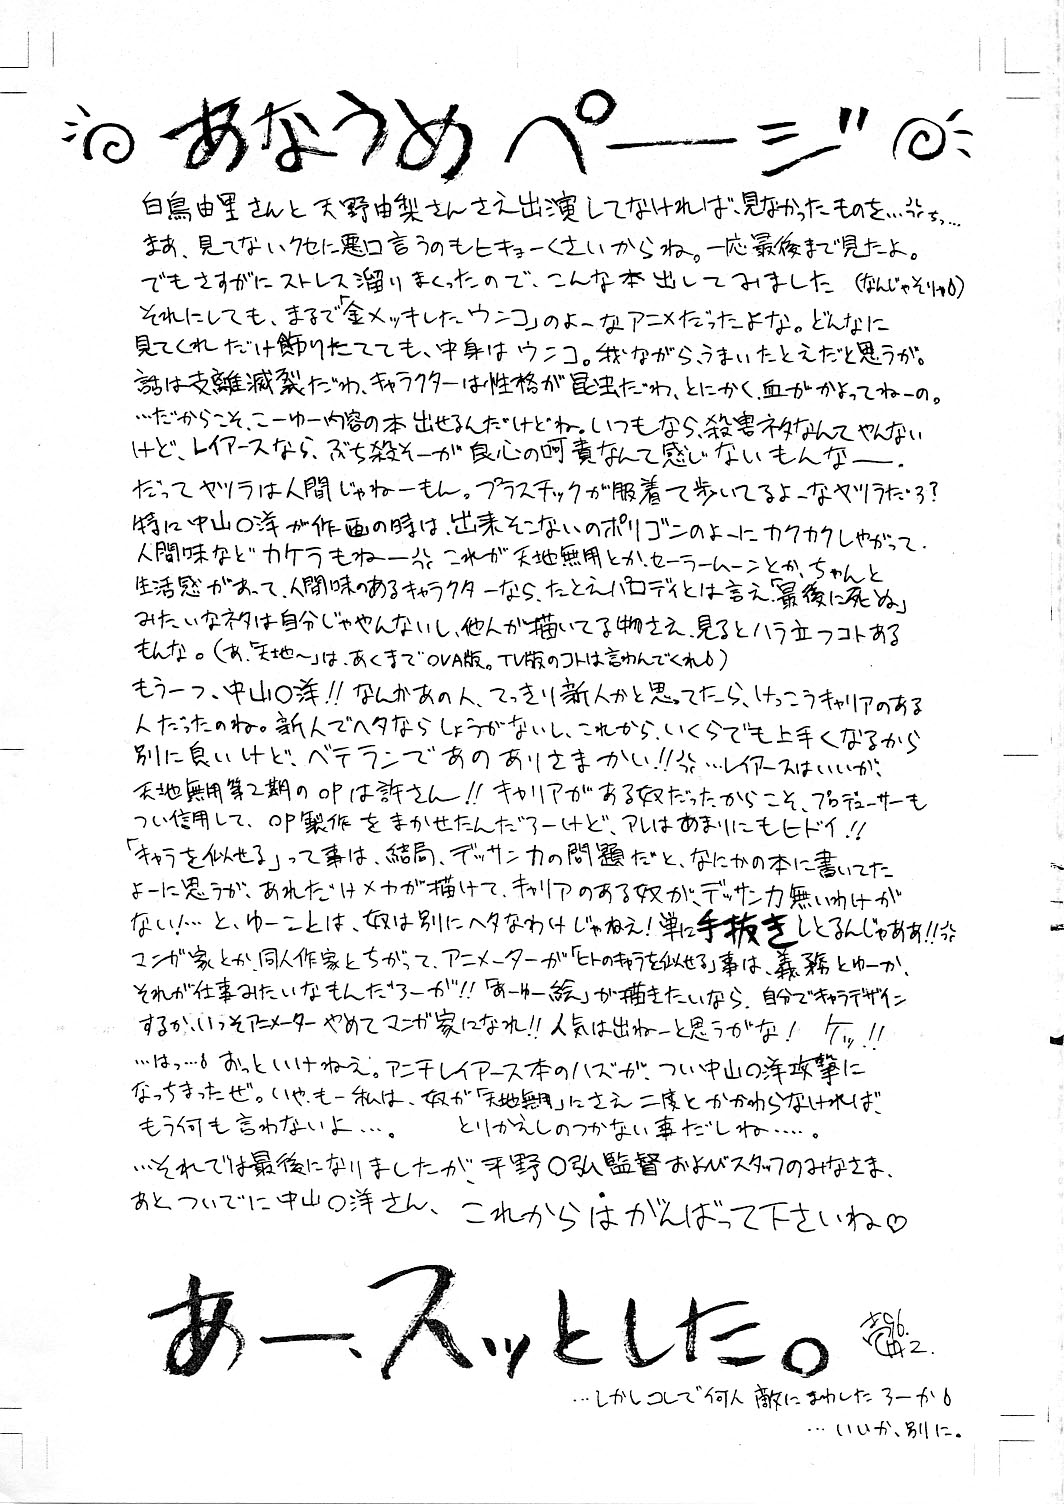 あなうめページ
白鳥由里さんと天野由梨さんさえ出演してなければ、見なかったものを…ちっ…
まあ、見てないクセに悪口言うのもヒキョーくさいからね。一応最後まで見たよ。
でもさすがにストレス溜りまくったので、こんな本出してみました(なんじゃそりゃ)
それにしても、まるで「金メッキしたウンコ」のよーなアニメだったよな。どんなに
見てくれだけ飾りたてても、中身はウンコ。我ながら、うまいたとえだと思うが。
話は支離滅裂だわ、キャラクターは性格が昆虫だわ、とにかく、血がかよってねーの。
…だからこそ、こーゆー内容の本出せるんだけどね。いつもなら、殺害ネタなんてやんない
けど、レイアースなら、ぶち殺そーが良心の呵責なんて感じないもんなー.
だってヤツラは人間じゃねーもん。プラスチックが服着て歩いてるよーなヤツラだろ?
特に中山〇洋が作画の時は、出来そこないのポリゴンのよーにカクカクしやがって、
人間味などカケラもねー これが天地無用とか、セーラームーンとか、ちゃんと
生活感があって、人間味のあるキャラクターなら、たとえパロディとは言え、「最後に死ぬ」
みたいなネタは自分じゃやんないし、他人が描いてる物さえ、見るとハラ立つコトある
もんな。(あ、「天地〜」は、あくまでOVA版。TV版のコトは言わんでくれ)
もう一つ、中山〇洋!! なんかあの人、てっきり新人かと思ってたら、けっこうキャリアのある
人だったのね。新人でヘタならしょうがないし、これから、いくらでも上手くなるから
別に良いけど、ベテランであのありさまかい!! …レイアースはいいが、
天地無用第2期のOPは許さん!! キャリアがある奴だったからこそ、プロデューサーも
つい信用して、OP製作をまかせたんだろーけど、アレはあまりにもヒドイ!!
「キャラを似せる」って事は、結局、デッサン力の問題だと、なにかの本に書いてた
よーに思うが、あれだけメカが描けて、キャリアのある奴が、デッサン力無いわけが
ない!… と、ゆーことは、奴は別にヘタなわけじゃねえ! 単に手抜きしとるんじゃああ!!
マンガ家とか、同人作家とちがって、アニメーターが「ヒトのキャラを似せる」事は、義務とゆーか、
それが仕事みたいなもんだろーが!! 「あーゆー絵」が描きたいなら、自分でキャラデザイン
するか、いっそアニメーターやめてマンガ家になれ!! 人気は出ねーと思うがな! ケッ!!
…はっ… おっといけねえ。アンチレイアース本のハズが、つい中山〇洋攻撃に
なっちまったぜ。いや、もー私は、奴が「天地無用」にさえ二度とかかわらなければ、
もう何も言わないよ…。 とりかえしのつかない事だしね…‥。
…それでは最後になりましたが、平野〇弘監督およびスタッフのみなさま、
あと、ついでに中山〇洋さん、これからはがんばって下さいね♡
あー、スッとした。
'96.
2.
…しかしコレで何人敵にまわしたろーか
…いいか、別に。